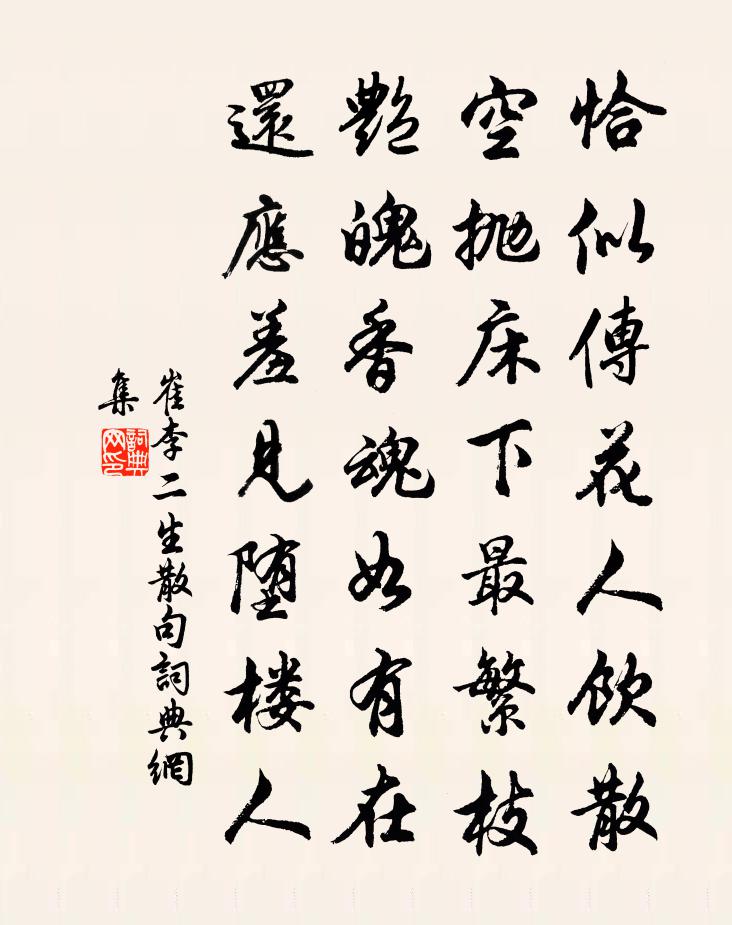 恰似傳花人飲散
空抛床下最繁枝
艷魄香魂如有在
還應羞見墮楼人
崔李二生散句詞典網
集
詞典
网印